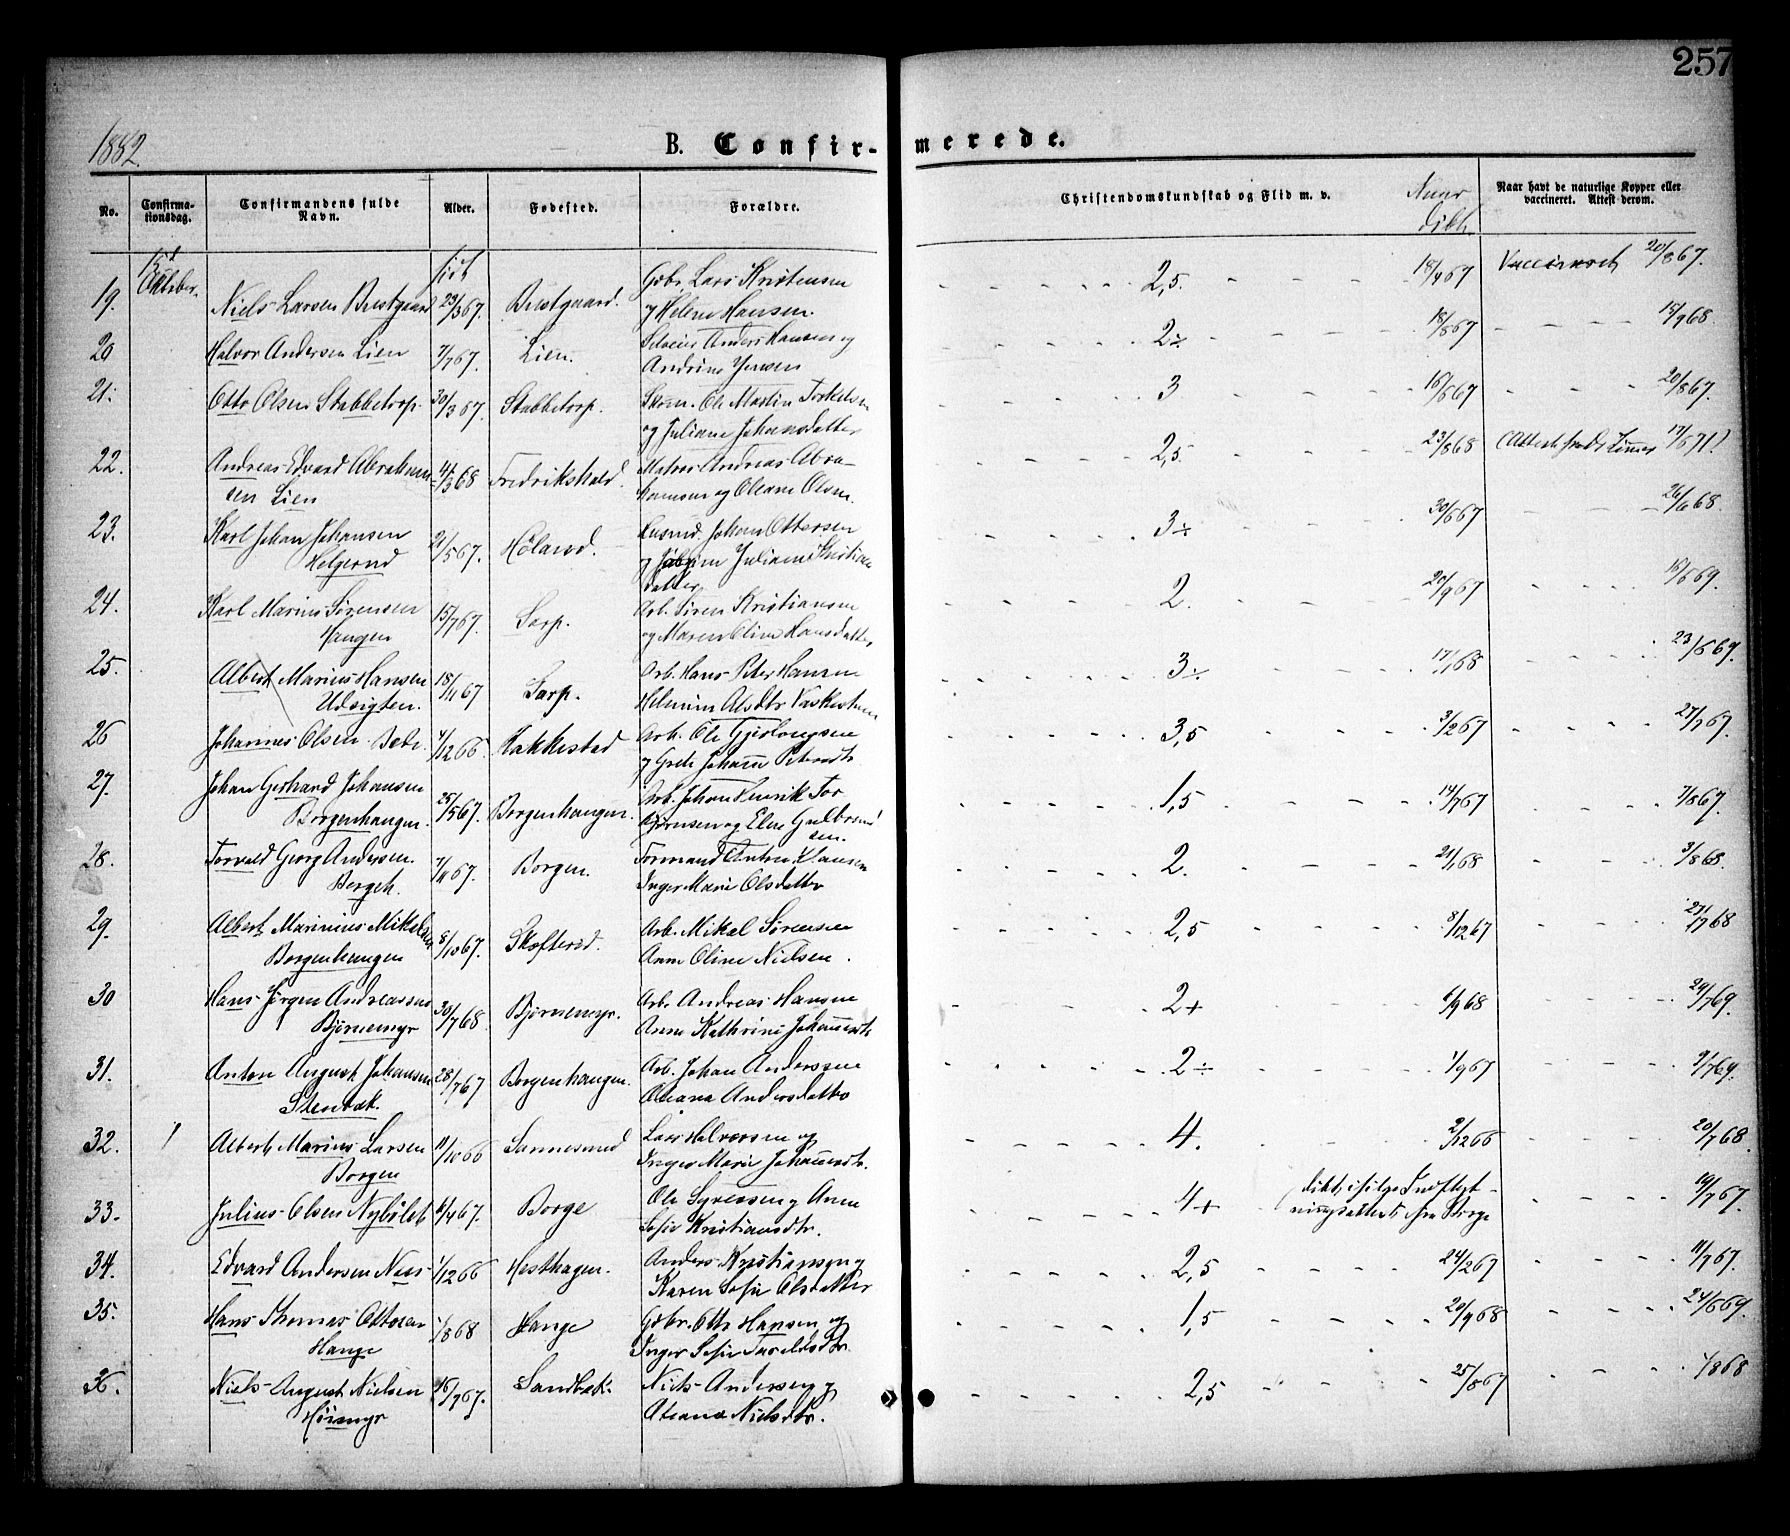 257
1882.
B. Confirmerede.
No. Confirmationsdag. Confirmandens fulde Navn. Alder. Fødested. Forældre. Christendomskundskab og Flid m. v. Naar døbt. Naar havt de naturlige Kopper eller vaccineret. Attest derom.
15d Oktober født
19. Niels Larsen Bustgaard 23/3 67. Bustgaard. Gbr. Lars Kristensen 2,5. 18/4 67 Vaccineret 20/8 67.
og Helene Hansen.
20 Halvor Andersen Lien 7/7 67. Lien. Anders Hansen og 2÷ 18/8 67 15/9 68.
Andrine Jensen
21. Otto Olsen Stabbetorp. 30/3 67. Stabbetorp. Ole Martin Torkelsen 3 16/6 67 20/8 67.
og Juliane Johansdatter
22. Andreas Edvard Abraham- 4/3 68 Fredrikshald. Andreas Abra- 2,5. 23/8 68 17/6 71
sen Lien hamsen og Oleane Olsen.
23. Karl Johan Johansen 21/5 67. Hølarød. Husmd. Johan Ottersen 3÷ 30/6 67 26/6 68.
Helgerød og Juliane Kristians
datter
24. Karl Marius Sørensen 15/7 67. Sarp. Arb. Søren Kristiansen 2. 20/9 67 16/6 69.
Haugen og Maren Oline Hansdatter,
25. Albert Marius Hansen 18/11 67 Sarp. Arb. Hans Peter Hansen 3÷ 17/1 68 23/6 69.
Udsigten. Helmine Olsdtr
26 Johannes Olsen 4/12 66 Rakkestad Arb. Ole 3,5 3/2 67 27/7 67.
og Grete Johanne
27. Johan Gerhard Johansen 25/5 67. Borgenhaugen. Arb. Johan Henrik Tor 1,5 14/7 67 7/8 67.
Borgenhaugen. bjørnsen og Elene Gulbrand
sen.
28. Torvald Georg Andersen. 7/11 67. Borgen. Formand Anton Hansen 2. 21/1 68 3/8 68.
Borgen. Inger Marie Olsdatter
29. Albert Marinius Mikelsen 8/10 67. Skofterød. Arb. Mikal Sørensen 2,5 8/12 67 27/7 68
Borgenhaugen Anne Oline Nielsen.
30 Hans Jørgen Andreassen 30/7 68. Bjørnemyr. Arb. Andreas Hansen 2+ 6/9 68 29/7 69.
Bjørnemyr Anne Kathrine Johannesdtr
31. Anton August Johansen 28/7 67 Borgenhaugen. Arb. Johan Anderssen 2÷ 1/9 67 9/7 69.
Stenbæk. Oleana Andersdatter
32. Albert Marius Larsen 11/10 66 Sannesund Lars Halvorsen og 4. 2/12 66 20/7 68.
Borgen Inger Marie Johannesdtr.
33. Julius Olsen Nybølet /4 67. Borge Ole Syversen og Anne 4+ døbt, ifølge Indflyt- 19/7 67.
Sofie Kristiansdtr. ningsattest fra Borge
34. Edvard Andersen Næs 1/12 66 Hesthagen. Anders Kristiansen og 2,5 24/2 67 11/7 67.
Karen Sofie Olsdatter
35. Hans Thomas Ottosen 1/8 68 Hauge Gbr. Otto Hansen og 1,5 20/9 68 24/6 69.
Hauge Inger Sofie
36. Niels August Nielsen 16/7 67. Sandbæk. Niels Andersen og 2,5 25/8 67 /8 68
Høimyr Oleana Nielsdtr.